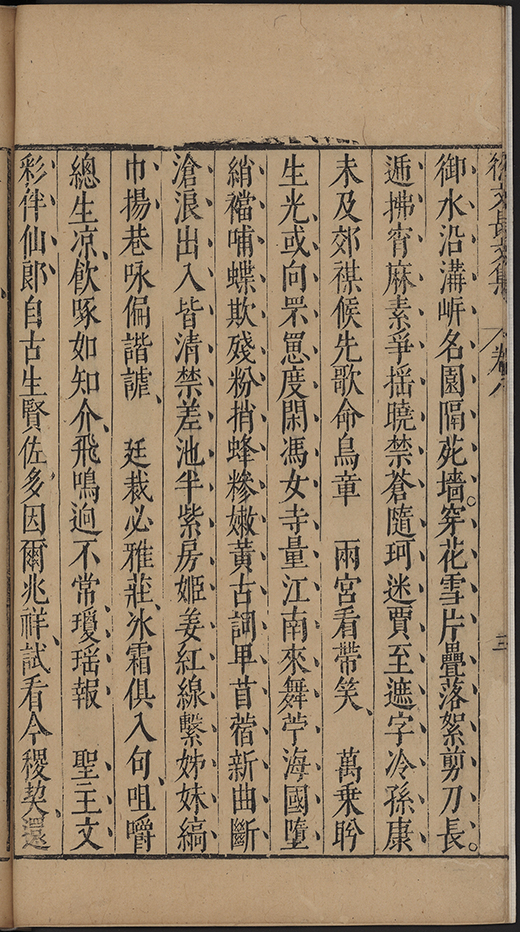 徐文長文集 卷八 三
御水沿溝㟁名園隔苑墻。穿花雪片疊落絮剪刀長。
遁拂宵麻素爭摇曉禁蒼隨珂迷賈至遮字冷孫康
未及郊禖候先歌命鳥章 兩宮看帶笑、 萬乘盻
生光、或向罘罳度閑馮女寺量江南來舞苧海國墮
綃襠哺蝶欺殘粉捎蜂糝嫩黃古詞甲首蓿新曲斷
滄浪出入皆清禁差池半紫房姬姜紅線繫姊妹縞
巾揚巷咏偏諧謔、 廷裁必雅莊、冰霜俱入句、咀嚼
總生凉、飲啄如知介、飛鳴逈不常、瓊瑶報 聖王文
彩伴仙郎、自古生賢佐、多因爾兆祥、試看今稷契、還